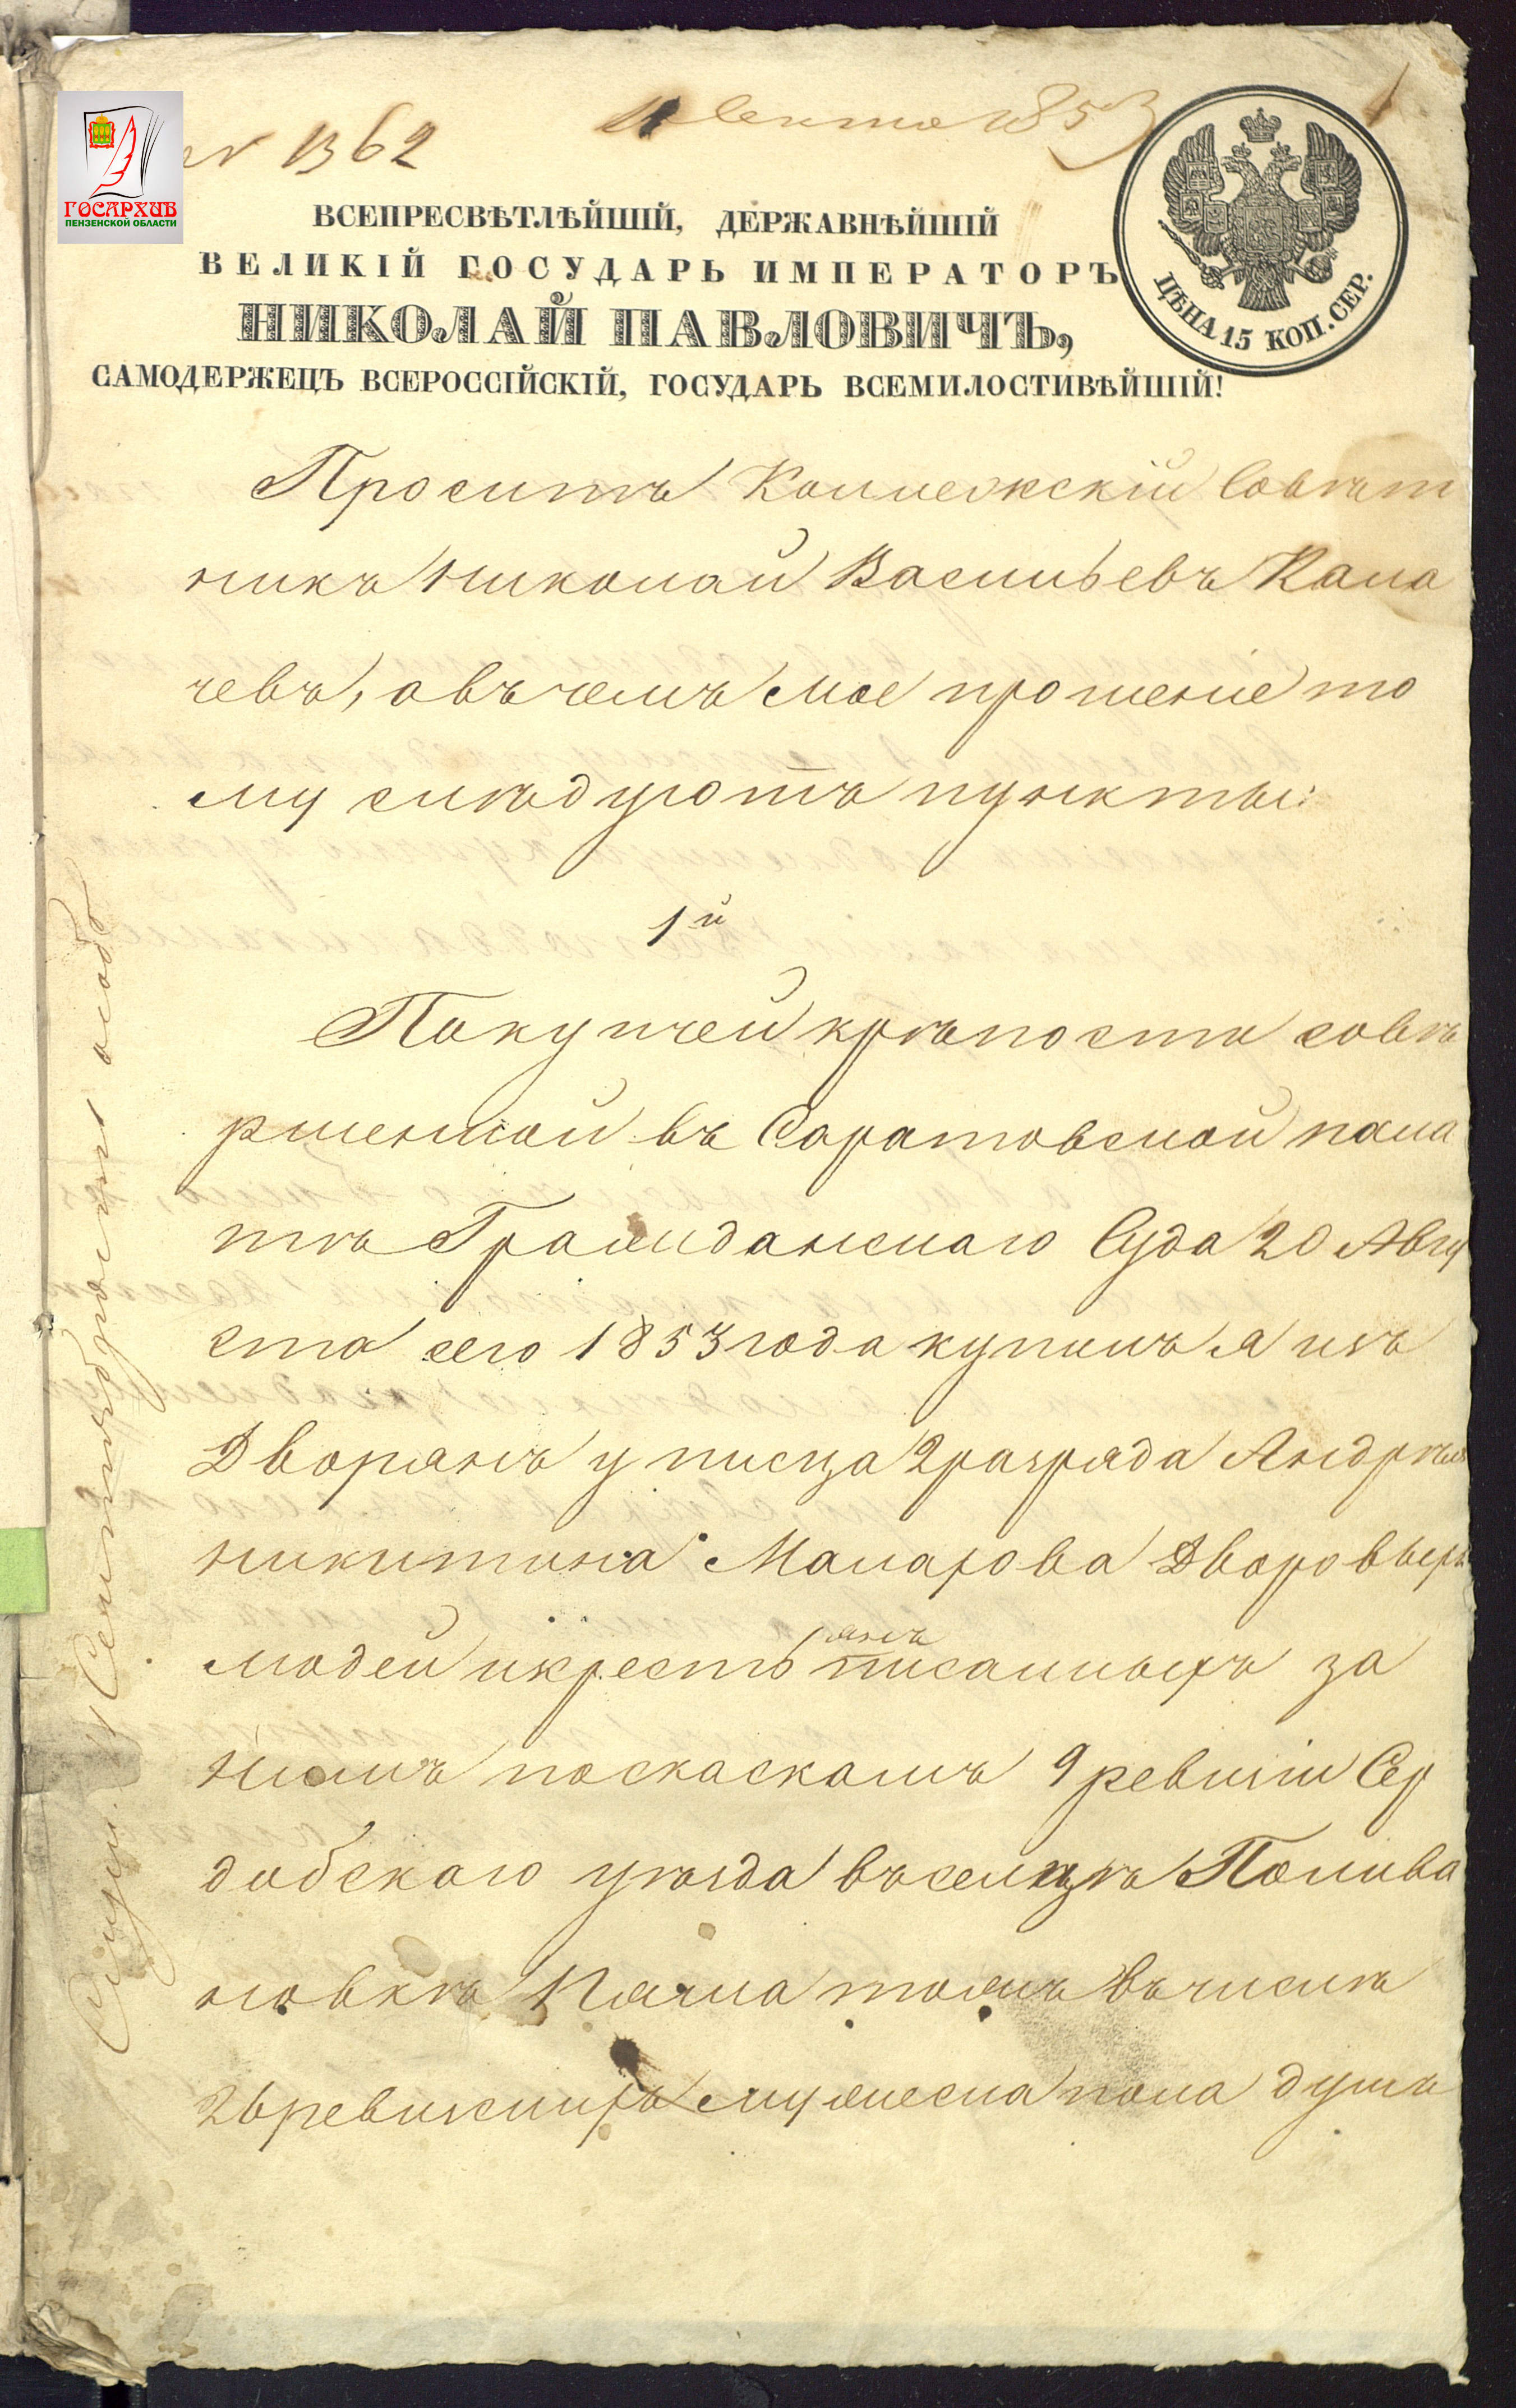 № 1362
11 Сента 1853
1
ГОСАРХИВ
ПЕНЗЕНСКОЙ ОБЛАСТИ
ЦѢНА 15 КОП. СЕР.
ВСЕПРЕСВѢТЛѢЙШІЙ, ДЕРЖАВНѢЙШІЙ
ВЕЛИКІЙ ГОСУДАРЬ ИМПЕРАТОРЪ
НИКОЛАЙ ПАВЛОВИЧЪ,
САМОДЕРЖЕЦЪ ВСЕРОССІЙСКІЙ, ГОСУДАРЬ ВСЕМИЛОСТИВѢЙШІЙ!
Проситъ Коллежскій Совѣт
никъ Николай Васильевъ Кала
чевъ, авъ чемъ мое прошеніе то
му слѣдуютъ пункты:
1й
Покупчей крѣпости совѣ
ршенной въ Саратовской пала
тѣ Гражданскаго Суда 20 Авгу
ста сего 1853 года купилъ я изъ
Дворянъ у писца 2 разряда Андрѣя
Никитина Макарова Дворовыхъ
людей и крестьянъ писанныхъ за
нимъ поскаскамъ 9 ревизіи Сер
добскаго уѣзда въ сельцѣ Полива
новкѣ Пячка тожъ въ числѣ
26 ревизскихъ мужеска пола душъ
Слуш. 11 Сентября